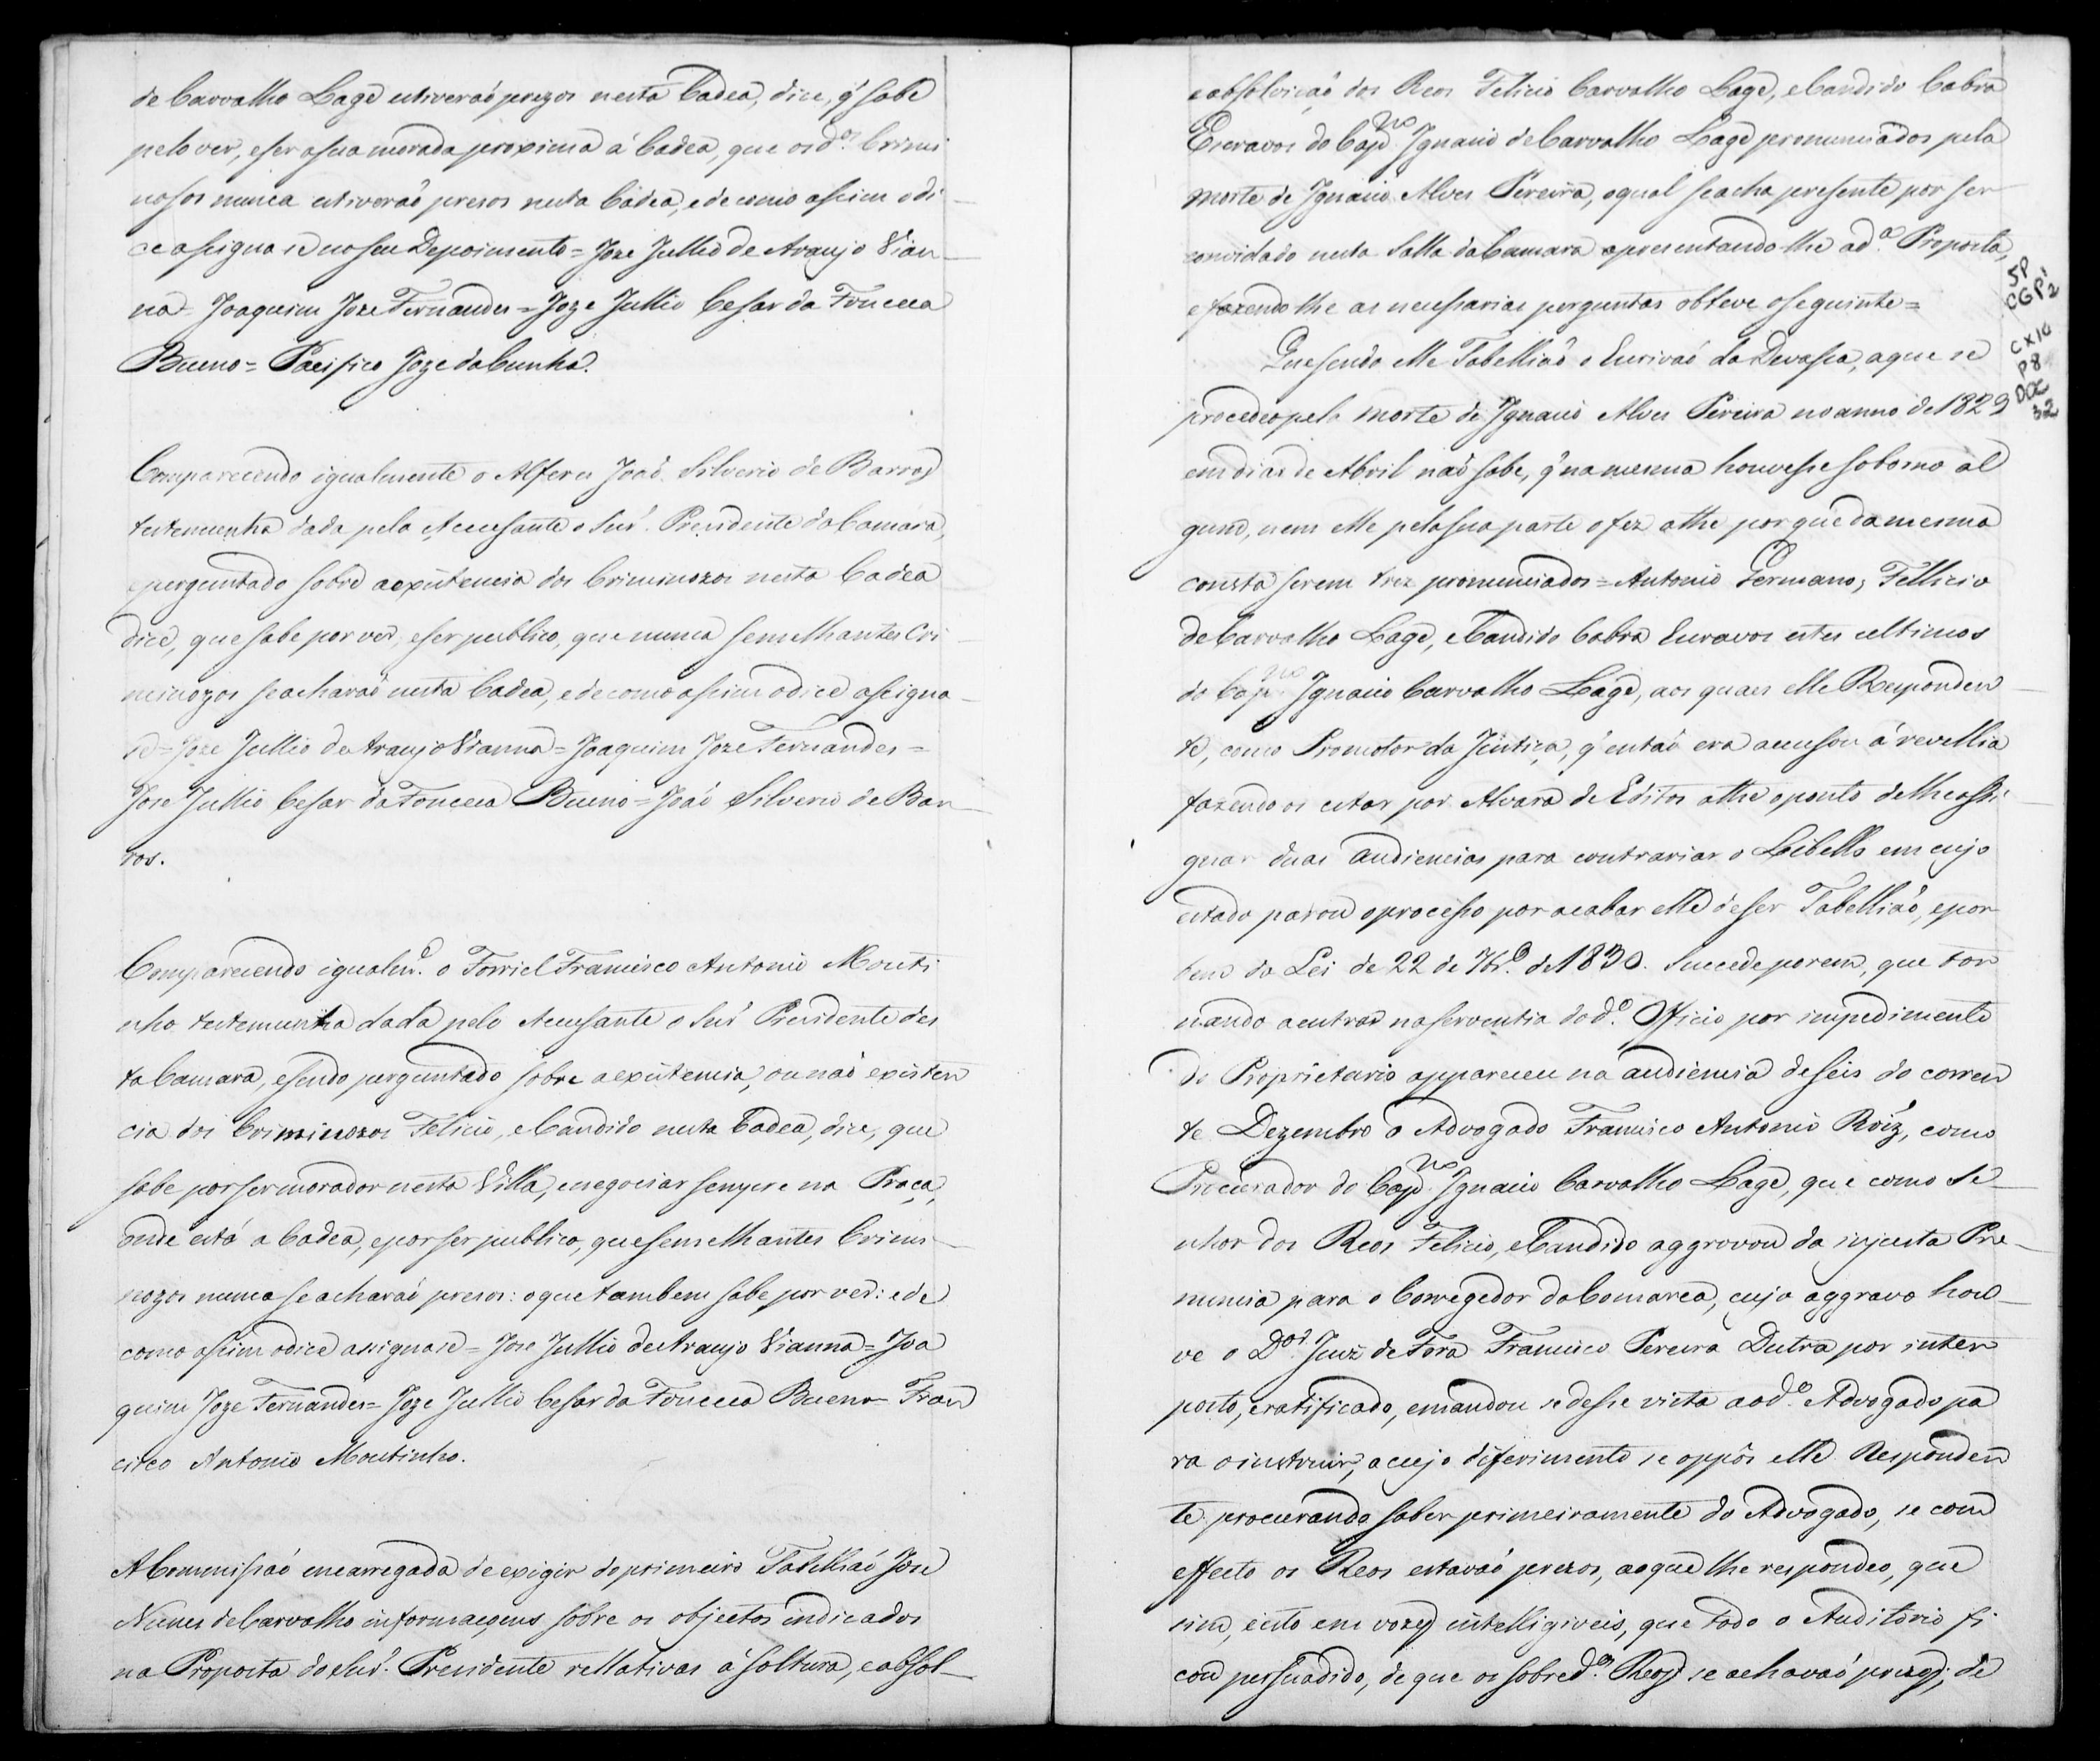 de Carvalho Lage estiveraõ prezos nesta Cadea, dice, q̃ sabe
pelo ver, e ser a sua morada proxima á Cadea, que os d.os Crimi
nosos nunca estiveraõ presos nesta Cadea, e de como assim o di-
ce assigna se no seu Depoimento = Joze Jullio de Araujo Vian-
na = Joaquim Joze Fernandes = Joze Jullio Cesar da Fonceca
Bueno = Pacifico Joze da Cunha.
Comparecendo igualmente o Alferes Joaõ Silverio de Barros
testemunha dada pelo Accusante o Snr̃. Presidente da Camara,
e perguntado sobre a existencia dos Criminozos nesta Cadea
dice, que sabe por ver, e ser publico, que nunca semelhantes Cri-
minozos se acharaõ nesta Cadea, e de como assim o dice assigna-
se = Joze Jullio de Araujo Vianna = Joaquim Joze Fernandes =
Joze Jullio Cesar da Fonceca Bueno = Joaõ Silverio de Bar-
ros.
Comparecendo igualm.e o Forriel Francisco Antonio Mouti
nho testemunha dada pelo Accusante o Snr̃ Presidente des
ta Camara, e sendo perguntado sobre a existencia, ou naõ existen
cia dos Criminozos Felicio, e Candido nesta Cadea, dice, que
sabe por ser morador nesta Villa, e negociar sempre na Praça,
onde está a Cadea, e por ser publico, que semelhantes Crimi-
nozos nunca se acharaõ presos: o que tambem sabe por ver: e de
como assim o dice assigna se = Joze Jullio de Araujo Vianna = Joa
quim Joze Fernandes = Joze Jullio Cesar da Fonceca Bueno = Fran
cisco Antonio Moutinho.
A Commissaõ encarregada de exigir do primeiro Tabelliaõ Joze
Nunes de Carvalho informaçoens sobre os objectos indicados
na Proposta do Snr̃. Presidente rellativas á soltura, e absol-
e absolviçaõ dos Reos Felicio Carvalho Lage, e Candido Cabra
Escravos do Cap.no Ignacio de Carvalho Lage pronunciados pela
morte de Ignacio Alves Pereira, o qual se acha presente por ser
convidado nesta Salla da Camara apresentando lhe a d.a Proposta,
e fazendo lhe as necessarias perguntas obteve o seguinte =
Que sendo elle Tabelliaõ o Escrivaõ da Devassa, a que se
procedeo pela morte de Ignacio Alves Pereira no anno de 1829
em dias de Abril naõ sabe, q̃ na mesma houvesse soborno al
gum, nem elle pela sua parte o fez athe por que da mesma
consta serem trez pronunciados = Antonio Germano, Fellicio
de Carvalho Lage, e Candido Cabra Escravos estes ultimos
do Cap.no Ignacio Carvalho Lage, aos quaes elle Responden-
te, como Promotor da Justiça, q̃ entaõ era accusou á revellia
fazendo os citar por Alvara de Editos athe o ponto de lhe assi-
gnar duas audiencias para contrariar o Libello em cujo
estado parou o processo por acabar elle de ser Tabelliaõ, e por
bem da Lei de 22 de 7br.o de 1830. Succede porem, que tor
nando a entrar na serventia do d.o Officio por impedimento
do Proprietario appareceu na audiencia de seis do corren
te Dezembro o Advogado Francisco Antonio Roĩz, como
Procurador do Cap.no Ignacio Carvalho Lage, que como Se-
nhor dos Reos Felicio, e Candido aggravou da injusta Pro-
nuncia para o Corregedor da Comarca, cujo aggravo hou-
ve o D.or Juiz de Fora Francisco Pereira Dutra por inter
posto, e ratificado, e mandou se desse vista ao d.o Advogado pa
ra o instruir, a cujo diferimento se oppôs elle Responden
te procurando saber primeiramente do Advogado, se com
effeito os Reos estavaõ prezos, ao que lhe respondeo, que
sim, e isto em vozes intelligiveis, que todo o Auditorio fi
cou persuadido, de que os sobred.os Reos se achavaõ prezos, de
SP
CGP2
CX10
P8
DOC
32